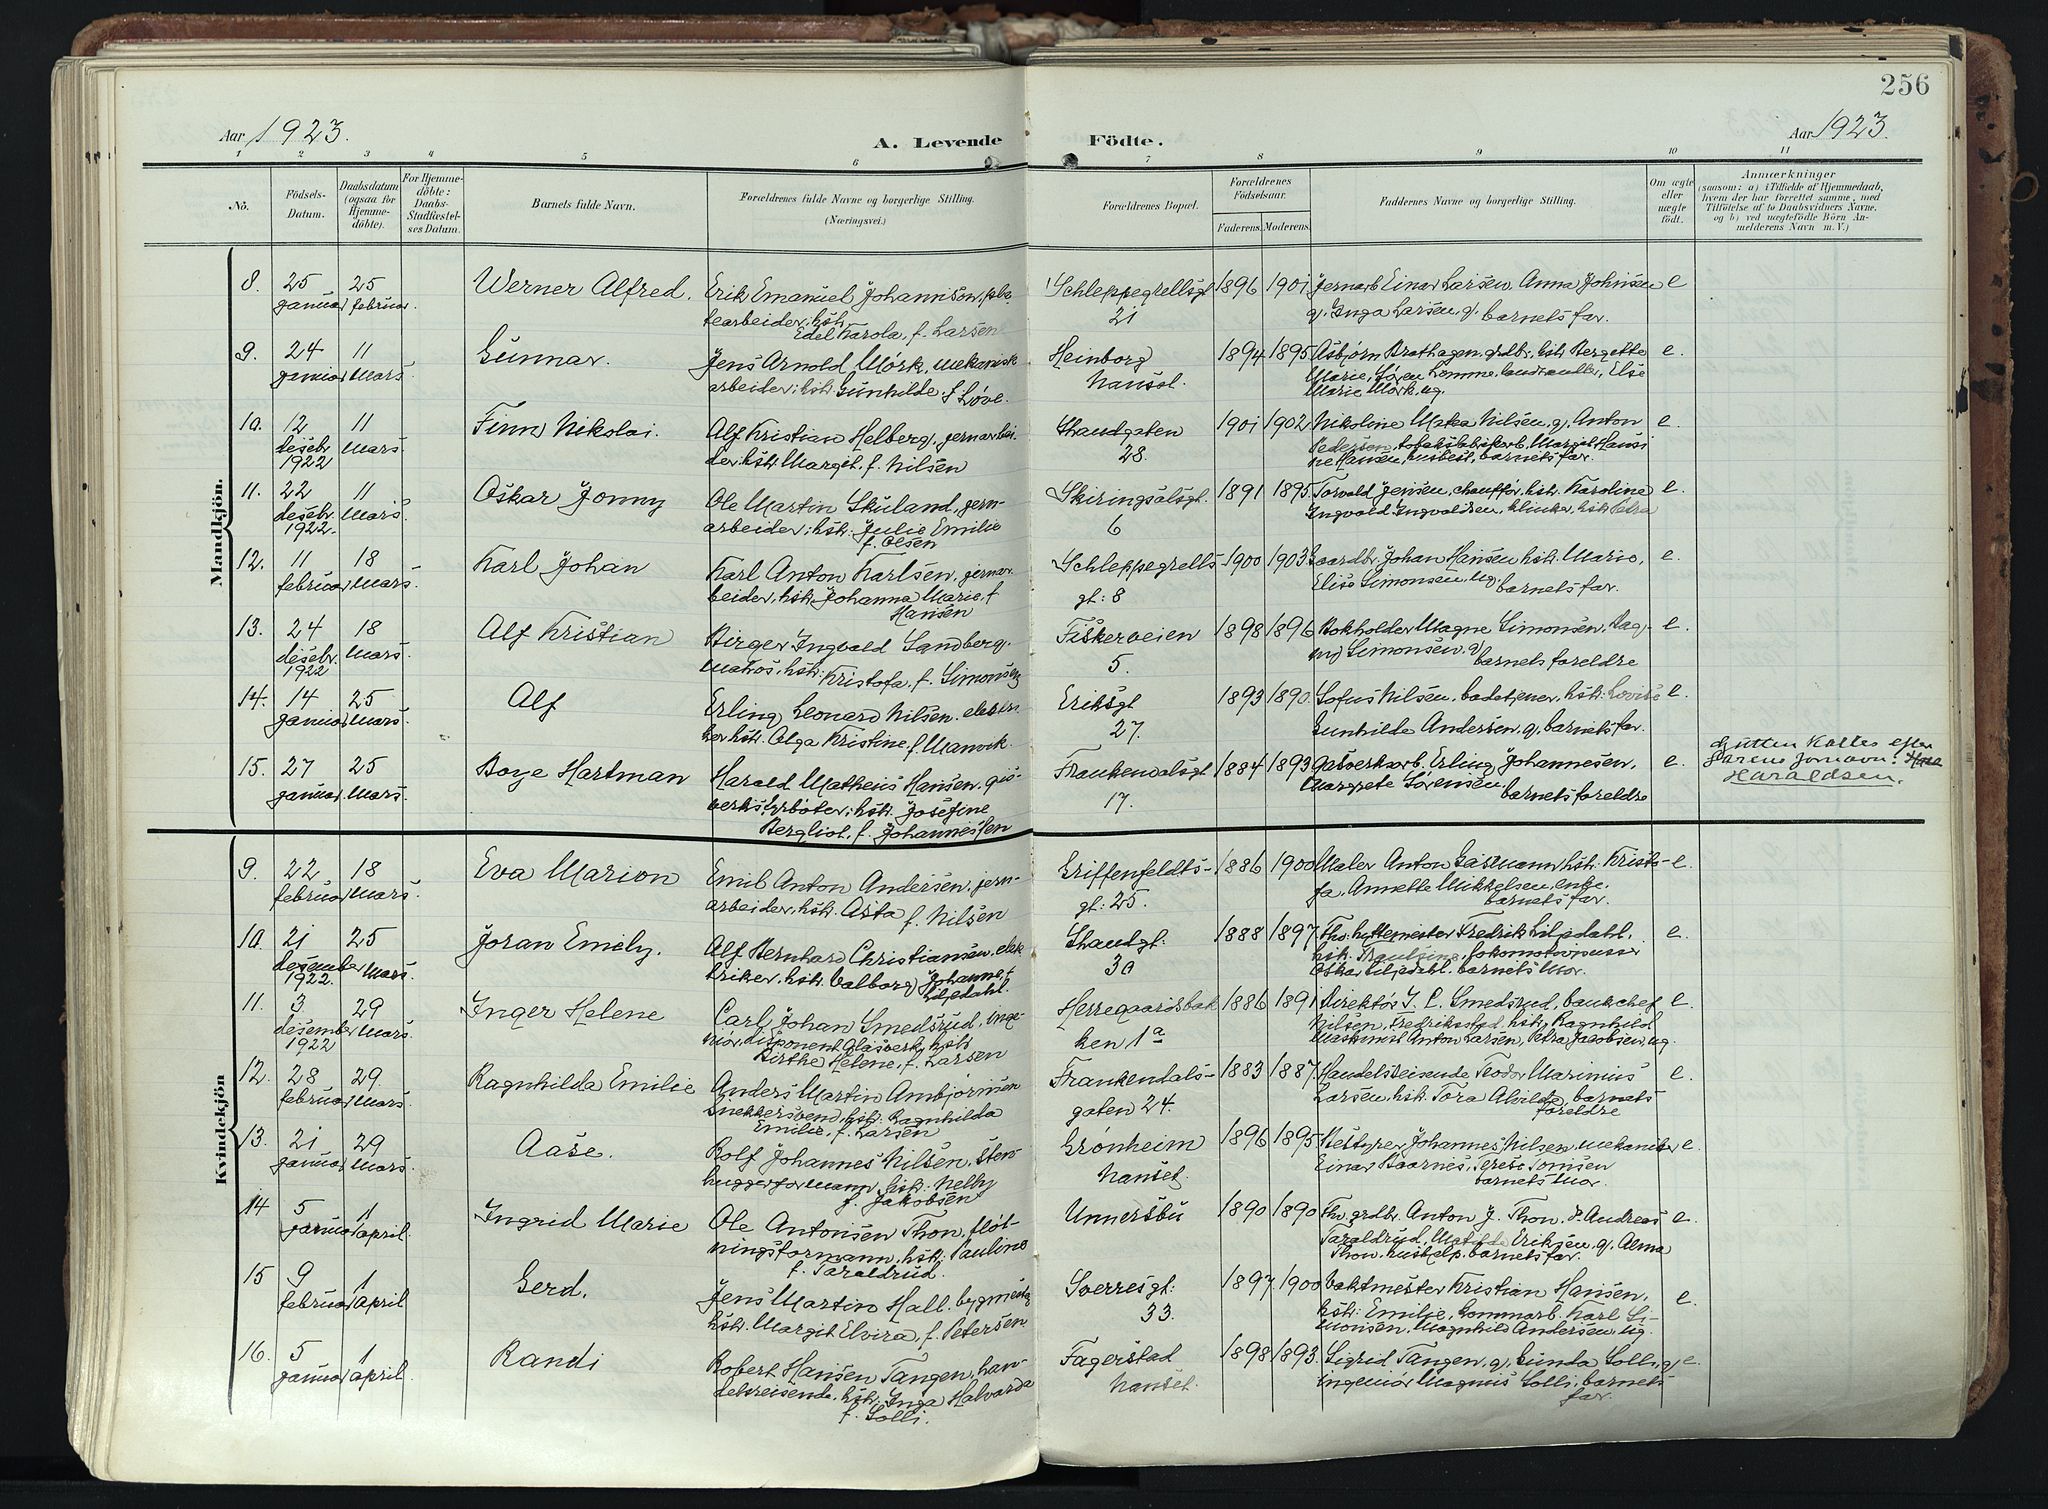 256
Aar 1923.
A. Levende Födte.
Aar 1923.
1 2 3 4 5 6 7 8 9 10 11
No.
Födsels-Datum.
Daabsdatum (ogsaa for Hjemme-döbte).
For Hjemme-döbte: Daabs-Stadfæstel-ses Datum.
Barnets fulde Navn.
Forældrenes fulde Navne og borgerlige Stilling.
(Næringsvei.)
Forældrenes Bopæl.
Forældrenes Födselsaar.
Faderens. Moderens.
Faddernes Navne og borgerlige Stilling.
Om ægte eller uægte födt.
Anmærkninger
(saasom: a) i Tilfælde af Hjemmedaab,
hvem der har forrettet samme, med
Tilföielse af to Daabsvidners Navne,
og b) ved uægtefödte Börn An-
melderens Navn m. V.)
Mandkjön.
8. 25 januar 25 februar. Werner Alfred. Erik Emanuel Johannison,
tearbeider, hstr. Edel Karola, f. Larsen
Schleppegrellsgt 21 1896 1901 Jernarb Einar Larsen, Anna Johnsen e
g. Inga Larsen, g. barnets far.
9. 24 januar 11 mars. Gunnar. Jens Arnold Mörk, mekanisk
arbeider; hstr: Gunhilde f Löve.
Heinborg Nanset. 1894 1895 Asbjörn Brathagen, grdbr, hstr Bergette e.
Marie, Sören Lomme, Else
Marie Mörk, ug.
10. 12 desebr. 1922 11 mars. Finn Nikolai. Alf Kristian Helberg, jernarbei-
der. hstr. Margit, f. Nilsen
Strandgaten 28. 1901 1902 Nikoline Matea Nilsen, g, Anton e.
Pedersen, tobaksfabrikarb. Margit Hansi
ne Hansen, husbest., barnets far.
11. 22 desebr. 1922. 11 mars. Oskar Jonny Ole Martin Skuland, jern-
arbeider; hstr: Julie Emilie
f. Olsen
Skiringsalsgt. 6 1891 1895 Torvald Jensen, chauffør, hstr. Karoline e.
Ingvald Ingvaldsen, klinker, hstr Petra
12. 11 februar 18 mars. Karl Johan Karl Anton Karlsen, jernar-
beider, hstr. Johanna Marie, f.
Hansen
Schleppegrells-gt: 8 1900 1903 Gaardbr Johan Hansen hstr. Marie, e.
Elise Simonsen, ug. barnets far.
13. 24 desebr. 1922 18 mars. Alf Kristian Birger Ingvald Sandberg.
matros, hstr: Kristofa, f. Simonsen
Fiskerveien 5. 1898 1896 Bokholder Magne Simonsen, Dag- e.
ny Simonsen, g. barnets foreldre
14. 14 januar 25 mars. Alf Erling Leonard Nilsen, elektri
ker hstr. Olga Kristine f. Manvik.
Eriksgt 27. 1893 1890 Sofus Nilsen, badetjener, hstr: Lovise e.
Gunhilde Andersen g, barnets far.
15. 27 januar 25 mars. Boye Hartman Harald Matheus Hansen, glas-
verksfyrböter; hstr. Josefine
Bergliot, f. Johannessen
Frankendalsgt 17. 1884 1893 Gasverksarb. Erling Johannesen, e.
Margrete Sörensen, barnets foreldre
Gutten kaldes efter
farens fornavn:
Haraldsen.
Kvindekjön
9. 22 februar 18 mars. Eva Marion Emil Anton Andersen, jern-
arbeider, hstr. Asta f. Nilsen
Griffenfeldts-gt: 25. 1886 1900 Maler Anton Gasmann, hstr: Kristo- e.
fa, Annette Mikkelsen, enke. barnets far.
10. 21 desember 1922. 25 mars. Joran Emely. Alf Bernhard Christiansen, elek
triker, hstr. Valborg Johanne, f.
Liljedahl.
Strandgt: 30 1888 1897 Fhv. hyttemester Fredrik Liljedahl, e.
hstr. Pauline, lokomotivpusser
Oskar Liljedahl. barnets mor.
11. 3 desember 1922 29 mars. Inger Helene Carl Johan Smedsrud, inge-
niör, disponent Glasverk, hstr
Birthe Helene, f. Larsen
Herregaardsbak ken 1a 1886 1891 Direktör J. C. Smedsrud, bankchef e.
Nilsen, Fredriksstad, hstr. Ragnhild
Maskinist Anton Larsen, Petra Jacobsen, ug.
12. 28 februar 29. mars. Ragnhilda Emilie Anders Martin Ambjörnsen
snekkersvend, hstr. Ragnhilda
Emilie, f. Larsen
Frankendals-gaten 24. 1883 1887 Handelsreisende Teodor Marinius e.
Larsen, hstr. Tora Alvilde, barnets
foreldre
13. 21 januar 29 mars. Aase. Rolf Johannes Nilsen, sten-
huggerformann, hstr: Nelly
f. Jakobsen
Grönheim Nanset. 1896 1895 Bestyrer Johannes Nilsen, mekaniker e.
Einar Baarnes, Terese Tomsen
barnets mor.
14 5 januar 1 april. Ingrid Marie Ole Antonsen Thon, flöt-
ningsformann, hstr. Pauline
f. Taraldrud.
Unnersbu 1890 1890 Fhv. grdbr. Anton J. Thon, Andreas e.
Taraldrud, Matilde Eriksen, g, Alma
Thon, hushelp. barnets far.
15 9 februar 1 april Gerd. Jens Martin Hall, bygmester
hstr. Margit Elvira, f. Petersen
Sverresgt: 33. 1897 1900 Vaktmester Kristian Hansen, e.
hstr: Emilie, kommarb. Karl Si-
monsen, Magnhild Andersen, ug.
16. 5 januar 1 april. Randi Robert Hansen Tangen, han-
delsreisende, hstr. Inga Halvarda
f. Solli.
Fagerstad Nanset. 1898 1893. Sigrid Tangen, g, Gunda Solli, g, e.
ingeniör Magnus Solli, barnets
far.